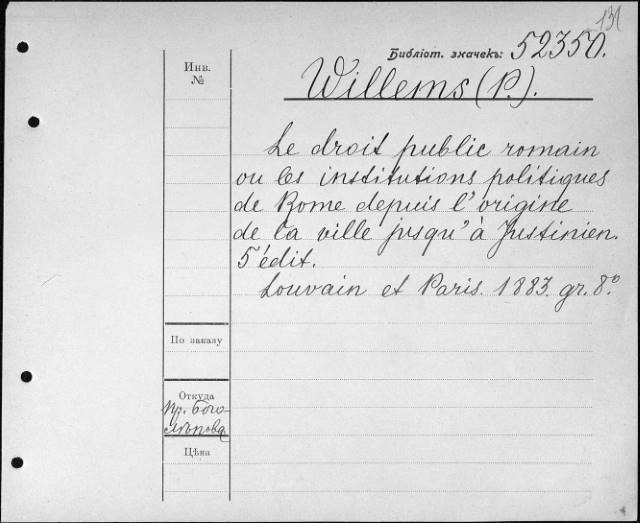 131
Библіот. значекъ: 52350.
Инв.
№
Willems (P.).
Le droit public romain
ou les institutions politiques
de Rome depuis l'origine
de la ville jusqu'à Justinien.
5 édit.
Louvain et Paris. 1883. gr. 8º.
По заказу
Откуда
пр. Бого-
лѣпова
Цѣна